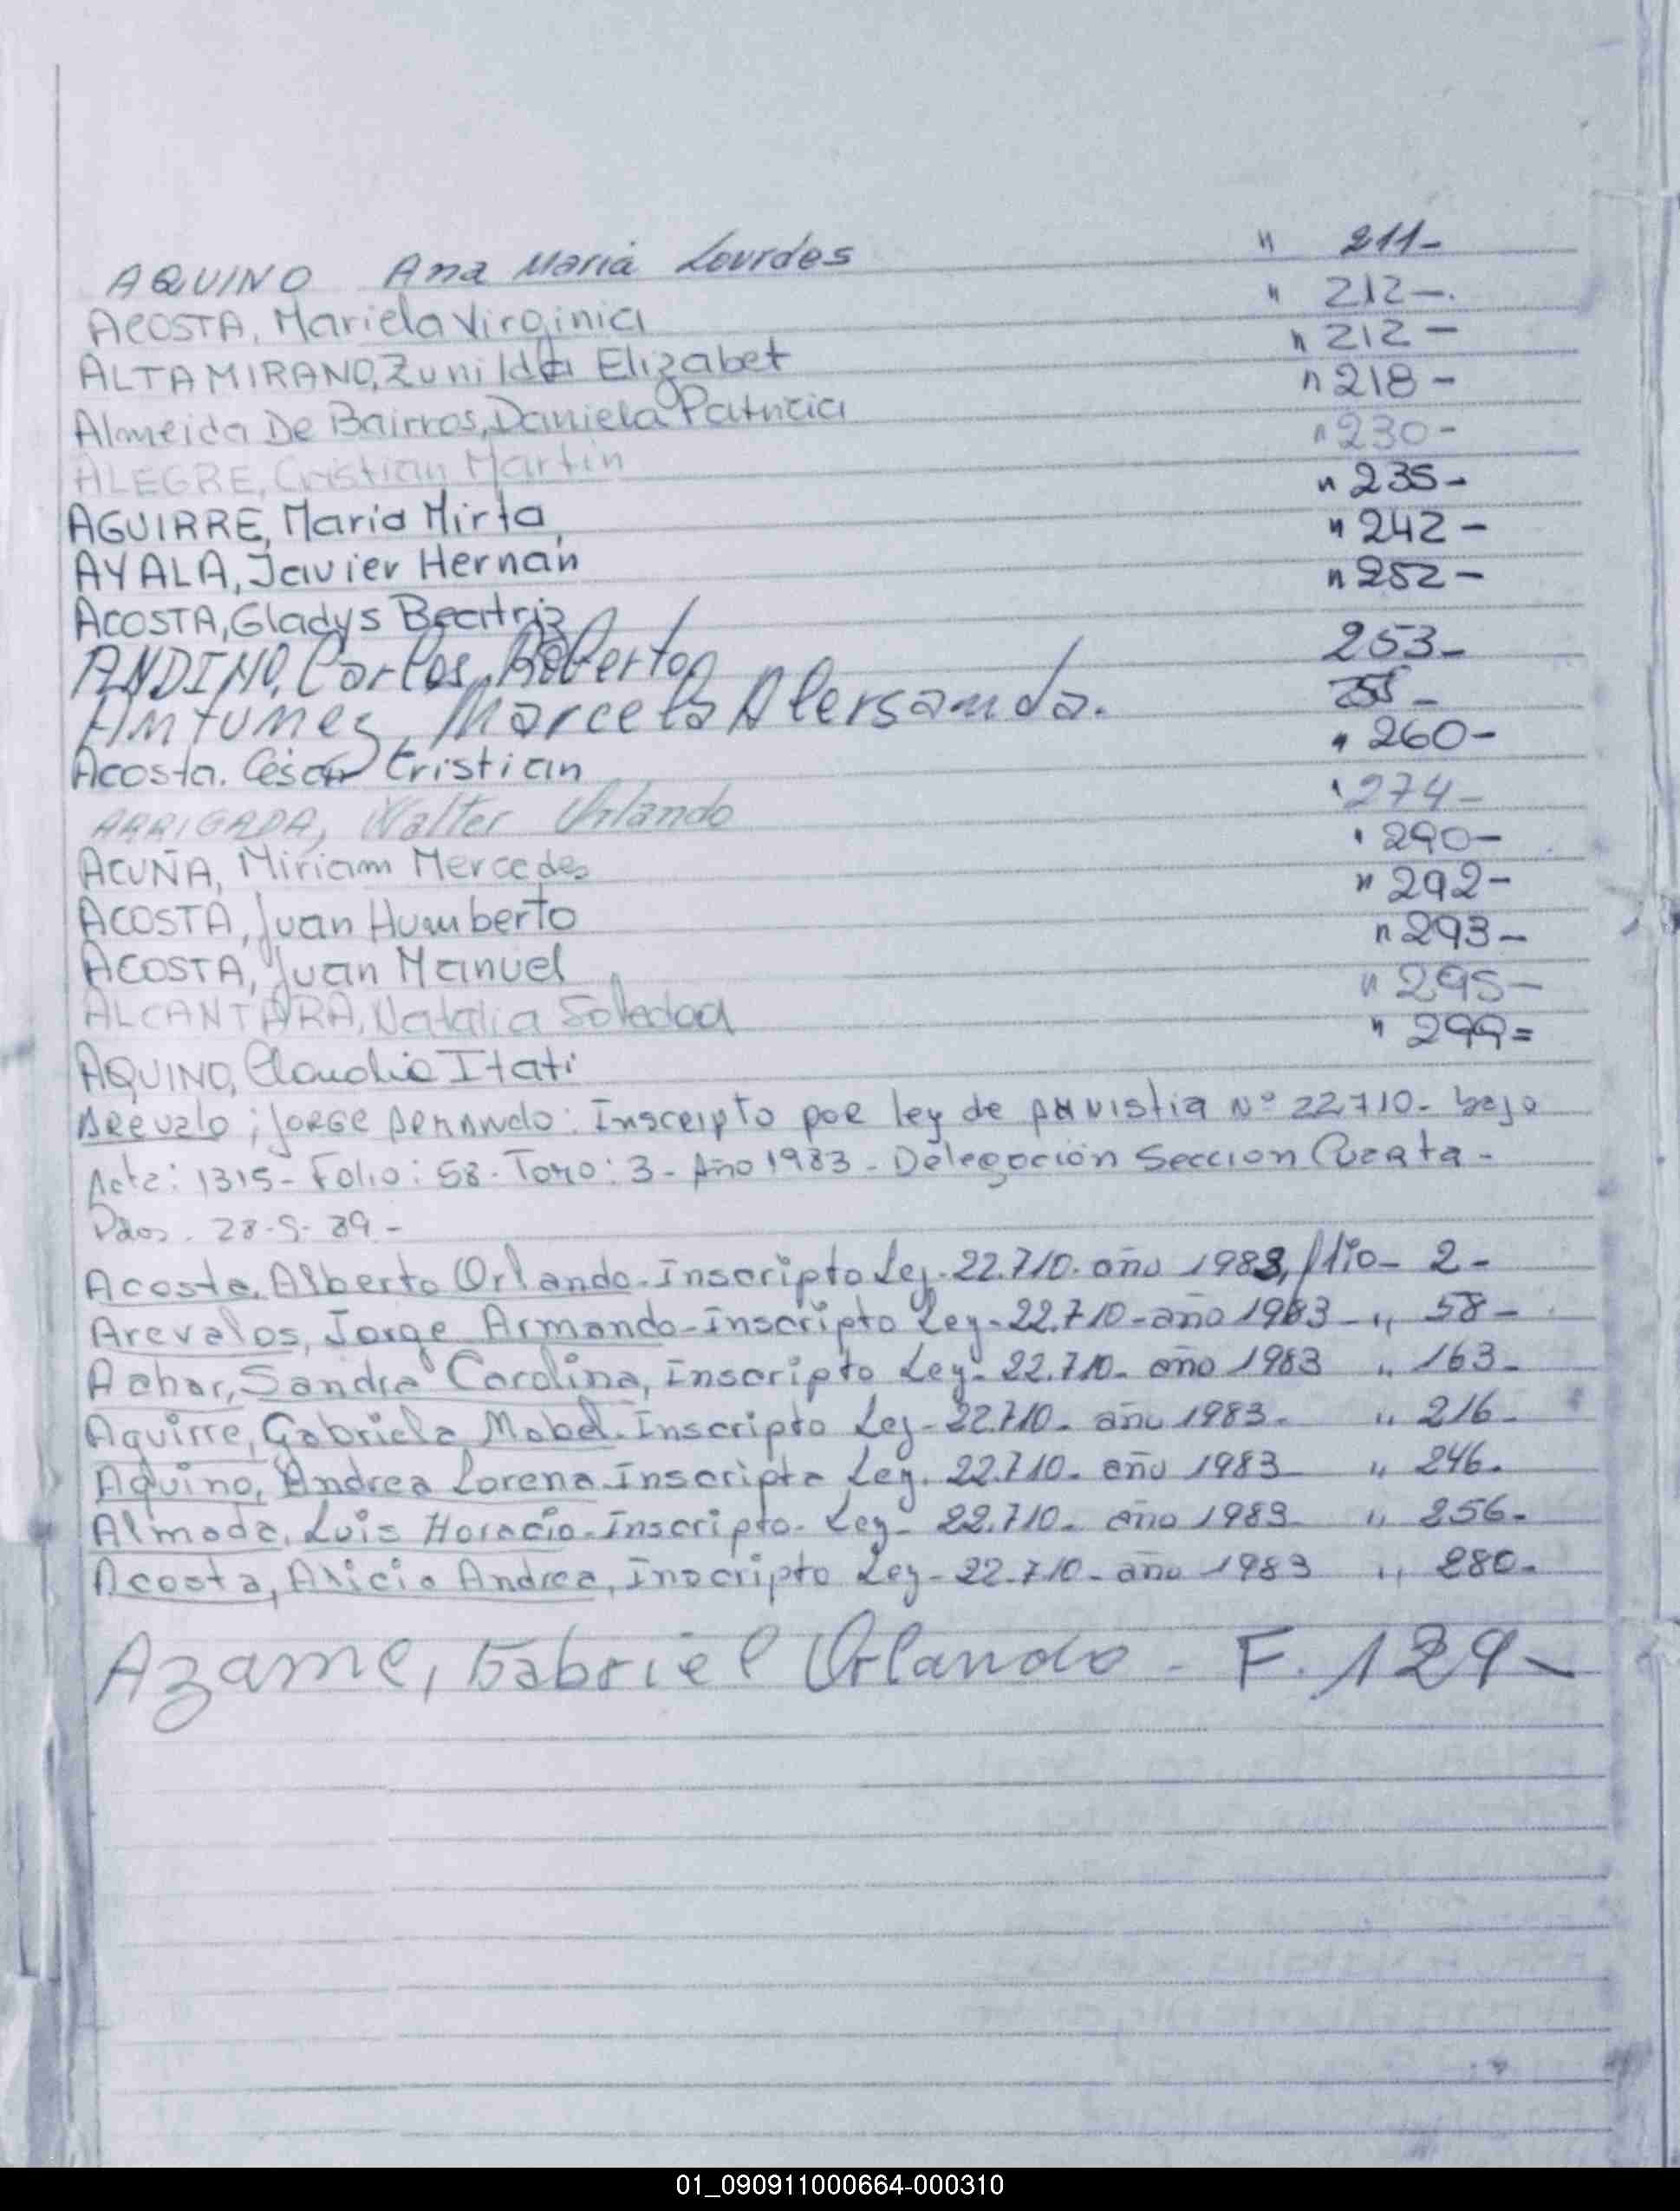 AQUINO Ana Maria Lourdes " 211-
ACOSTA, Mariela Virginia " 212-.
ALTAMIRANO, Zunilda Elizabet " 212-
Almeida De Bairros, Daniela Patricia " 218-
ALEGRE, Cristian Martin " 230-
AGUIRRE, Maria Mirta " 235-
AYALA, Javier Hernán " 242-
ACOSTA, Gladys Beatriz " 252-
ANDINO, Carlos Roberto 253-
Antunez, Marcela Alersanda.
Acosta. César Cristian " 260-
ARRIGADA, Walter Orlando " 274-
ACUÑA, Miriam Mercedes " 290-
ACOSTA, Juan Humberto " 292-
ACOSTA, Juan Manuel " 293-
ALCANTARA, Natalia Soledad " 295-
AQUINO, Claudia Itati " 299=
Arevalo; Jorge Armando: Inscripto por ley de amnistia Nº 22.710- bajo
Acta: 1315- Folio: 58- Tomo: 3- Año 1983- Delegacion Seccion Cuarta-
28-5-89-
Acosta, Alberto Orlando-Inscripto Ley-22.710-año 1983, folio- 2-
Arevalos, Jorge Armando-Inscripto Ley-22.710-año 1983- " 58-
Sandra Carolina, Inscripto Ley- 22.710- año 1983 " 163-
Aguirre, Gabriela Mabel-Inscripto Ley-22.710- año 1983- " 216-
Aquino, Andrea Lorena-Inscripta Ley. 22.710- año 1983 " 246.
Almada, Luis Horacio-Inscripto- Ley- 22.710- año 1983 " 256-
Acosta, Alicia Andrea, Inscripto Ley-22.710-año 1983 " 280-
Azame, Gabriel Orlando - F. 129-
01_090911000664-000310